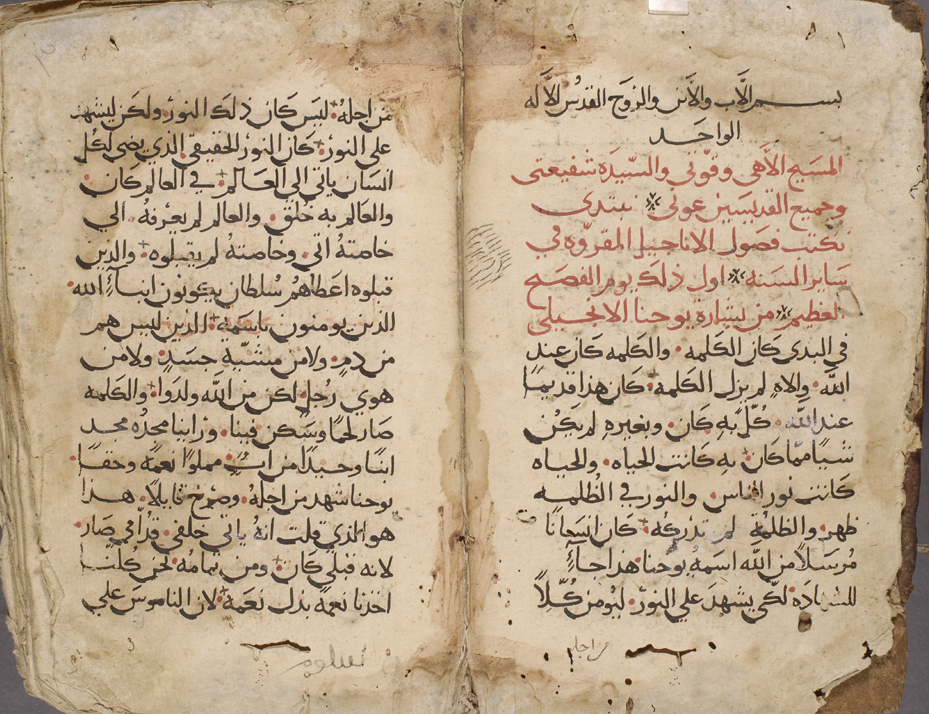 بسم الآب والابن والروح القدس الاله
الواحد
المسيح الاهي وقوتي والسيدة شفيعتي
وجميع القديسين عوني نبتدي
نكتب فصول الاناجيل المقروه في
ساير السنه اول ذلك يوم الفصح
العظيم من بشارة يوحنا الانجيلي
في البدي كان الكلمه والكلمه كان عند
الله والاه لم يزل الكلمه كان هذا قديمًا
عند الله كُلٌّ بهِ كان وبغيره لم يكُن
شيًا ممّا كان بهِ كانت الحياه والحياه
كانت نور الناس والنور في الظلمه
ظهر والظلمة لم تدركه كان انسانًا
مُرسَلاً من الله اسمهُ يوحنا هذا جاء
للشهادة لكي يشهد علي النور ليومن كُلاً
من اجله
من اجله ليس كان ذلك النور ولكن ليشهد
علي النور كان النور الحقيقي الذي يضي لكل
انسان ياتي الي العالم في العالم كان
والعالم به خُلق والعالم لم يعرفهُ الي
خاصتهُ اتي وخاصتهُ لم يقبلوه والذين
قبلوه اعطاهم سُلطان يكونون ابناء الله
الذين يومنون باسمه الذين ليس هم
من دمٍ ولا من مشيّة جسدٍ ولا من
هوي رُجلٍ لكن من الله ولدوا والكلمه
صار لحمًا وسكن فينا وراينا مجدُه مجد
ابنًا وحيدًا من ابٍ مملوًا نعمةً وحقًا
يوحنا شهد من اجله وصرخ قايلاً هذا
هو الذي قلت انهُ ياتي خلفي قدّامي صار
لانه قبلي كان ومن تمامه نحن كلنا
اخذنا نعمةً بدل نعمة لان الناموس علي